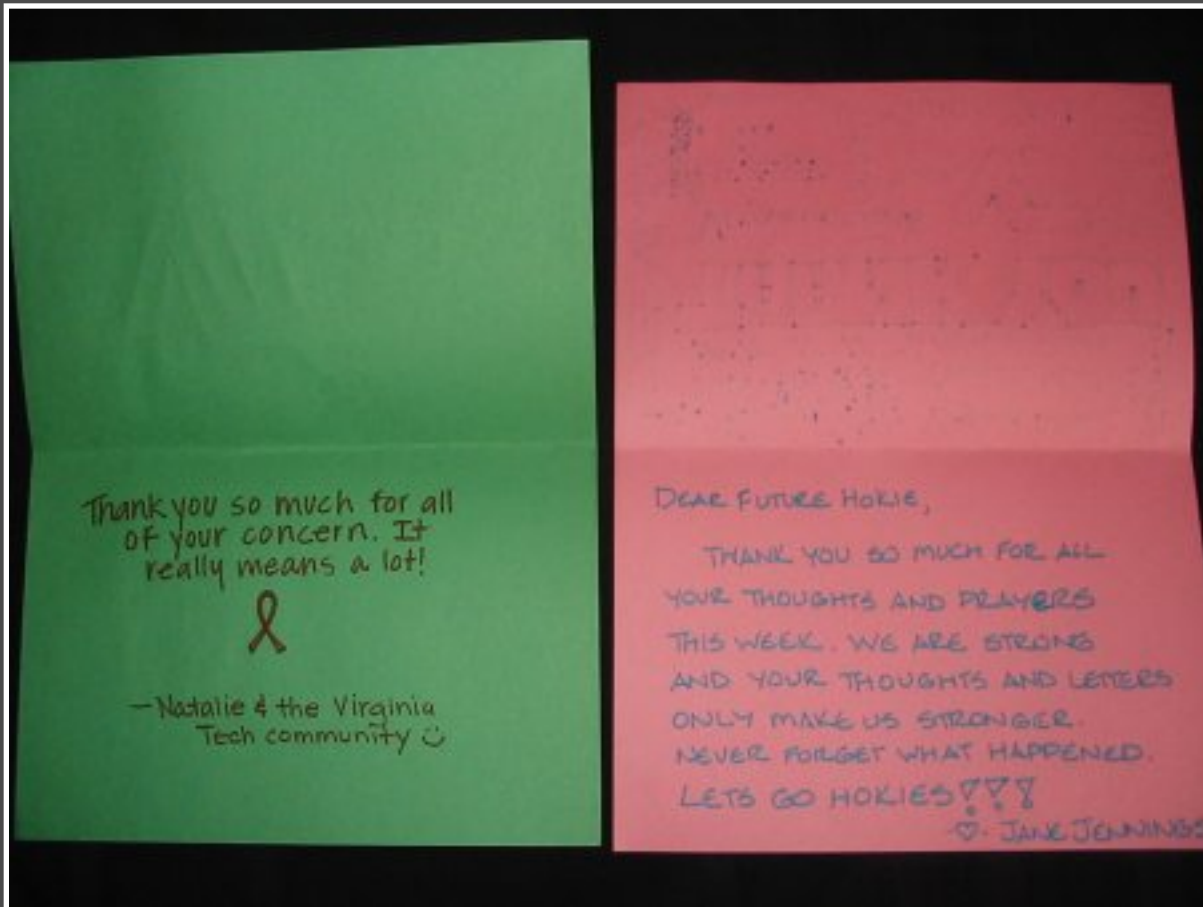 Thank you so much for all
of your concern. It
really means a lot!
—Natalie & the Virginia
Tech community
DEAR FUTURE HOKIE,
THANK YOU SO MUCH FOR ALL
YOUR THOUGHTS AND PRAYERS
THIS WEEK. WE ARE STRONG
AND YOUR THOUGHTS AND LETTERS
ONLY MAKE US STRONGER.
NEVER FORGET WHAT HAPPENED.
LETS GO HOKIES!!!
♡- JANE JENNINGS